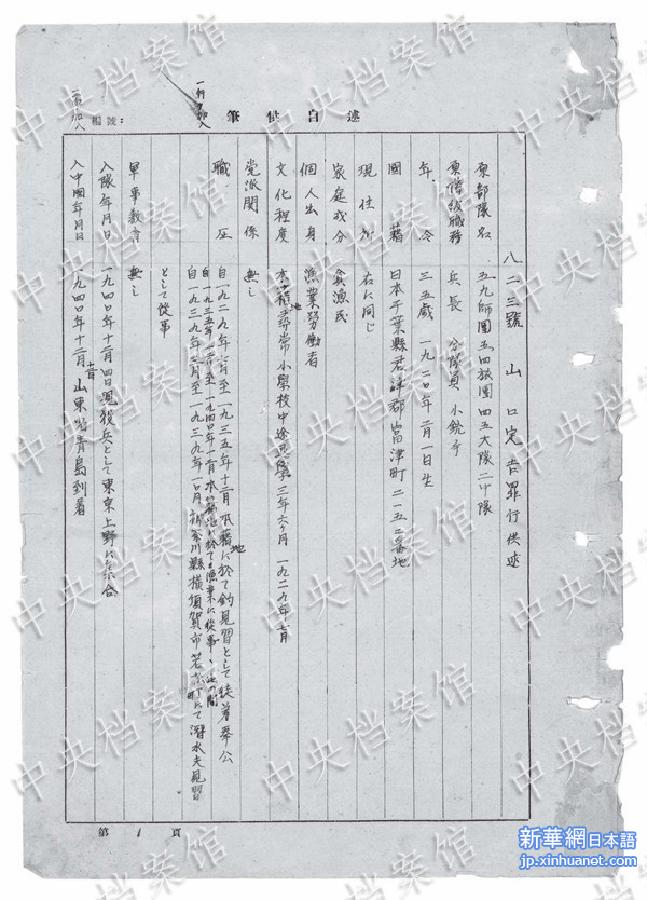 筆供自述
一行加入
編號：
八二三號 山口完吉罪行供述
原部隊名 五九師團五四旅團四五大隊二中隊
原階級職務 兵長 分隊員 小銃手
年 令 三五歳 一九二〇年二月一日生
國 籍 日本千葉縣君津郡富津町二一五二番地
現住所 右に同じ
家庭成分 貧漁民
個人出身 漁業勞働者
文化程度 尋常小學校中途退學 三年六ヶ月 一九二九年
党派関係 無し
職 歴 自一九二九年 月至一九三五年十二月 本籍地に於て釣見習として 奉公
自一九三五年 至一九四〇年 本籍地に於て漁業に従事し 此の間
自一九三九年 月至一九三九年一〇月 神奈川縣横須賀市若松町にて潜水夫見習
として從事
軍事教育 無し
入隊年月日 一九四〇年十二月四日現役兵として東京上野に集合
入中國年月日 一九四〇年十二月十 日山東省青島到着
第 1 頁
中央档案馆
新華網日本語
jp.xinhuanet.com